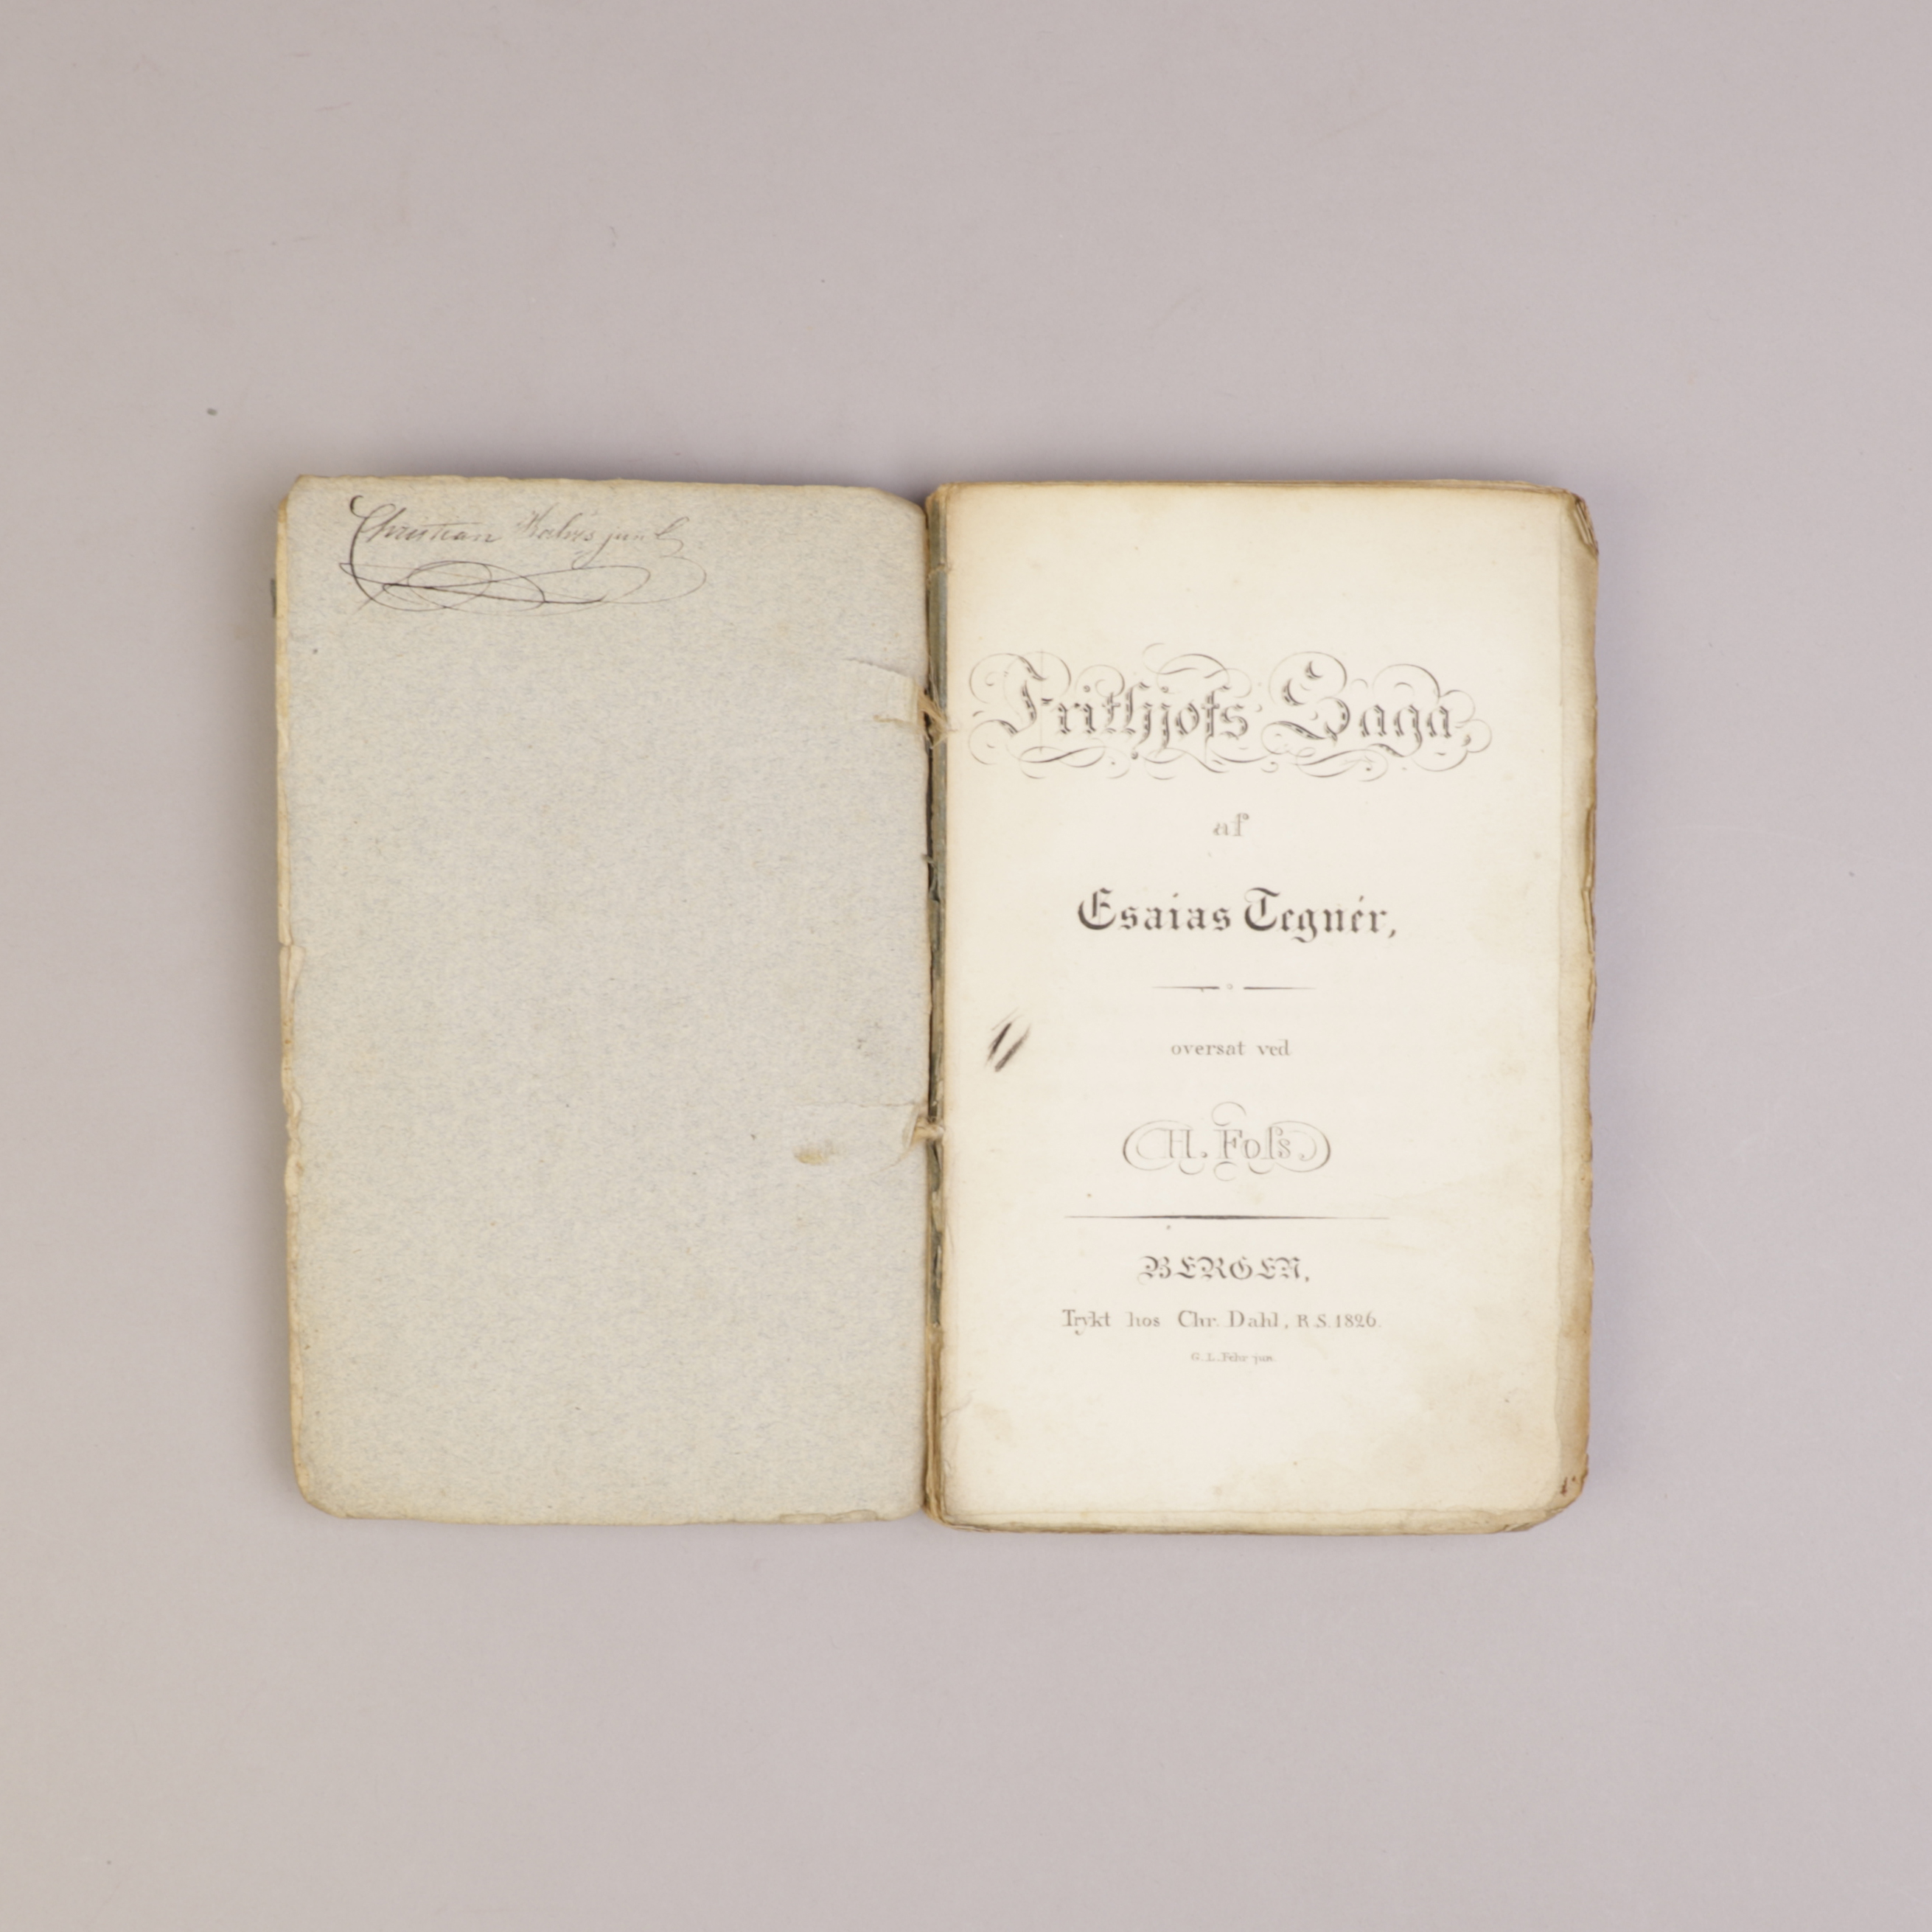 Christian
Frithjofs Saga,
af
Esaias Tegnér,
oversat ved
H. Foſs
BERGEN,
Trykt hos Chr. Dahl, R.S. 1826.
G. L. Fehr jun.